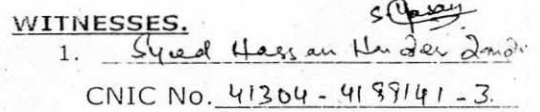 WITNESSES.
1. Syed Hassan Haider
CNIC No. 41304-4199141-3